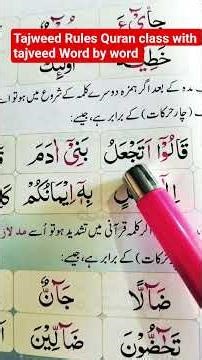 Tajweed Rules Quran class with
tajveed Word by word
جِایْٓءَ
خَطِیْٓـَٔ
اُولٰٓئِكَ
مدہ کے بعد اگر ہمزہ دوسرے کلمہ کے شروع میں ہو تو اسے
چار حرکات) کے برابر ہے، جیسے:
قَالُوْٓا اَتَجْعَلُ
بَنِیْٓ اٰدَمَ
بِهٖٓ اِیْمَانُكُمْ
اگر کلمہ قرآنی میں تشدید ہو تو اُسے مد لاز
کات) کے برابر ہے، جیسے:
ضَآلًّا
جَآنٌّ
تَحٰٓضُّوْنَ
ضَآلِّیْنَ